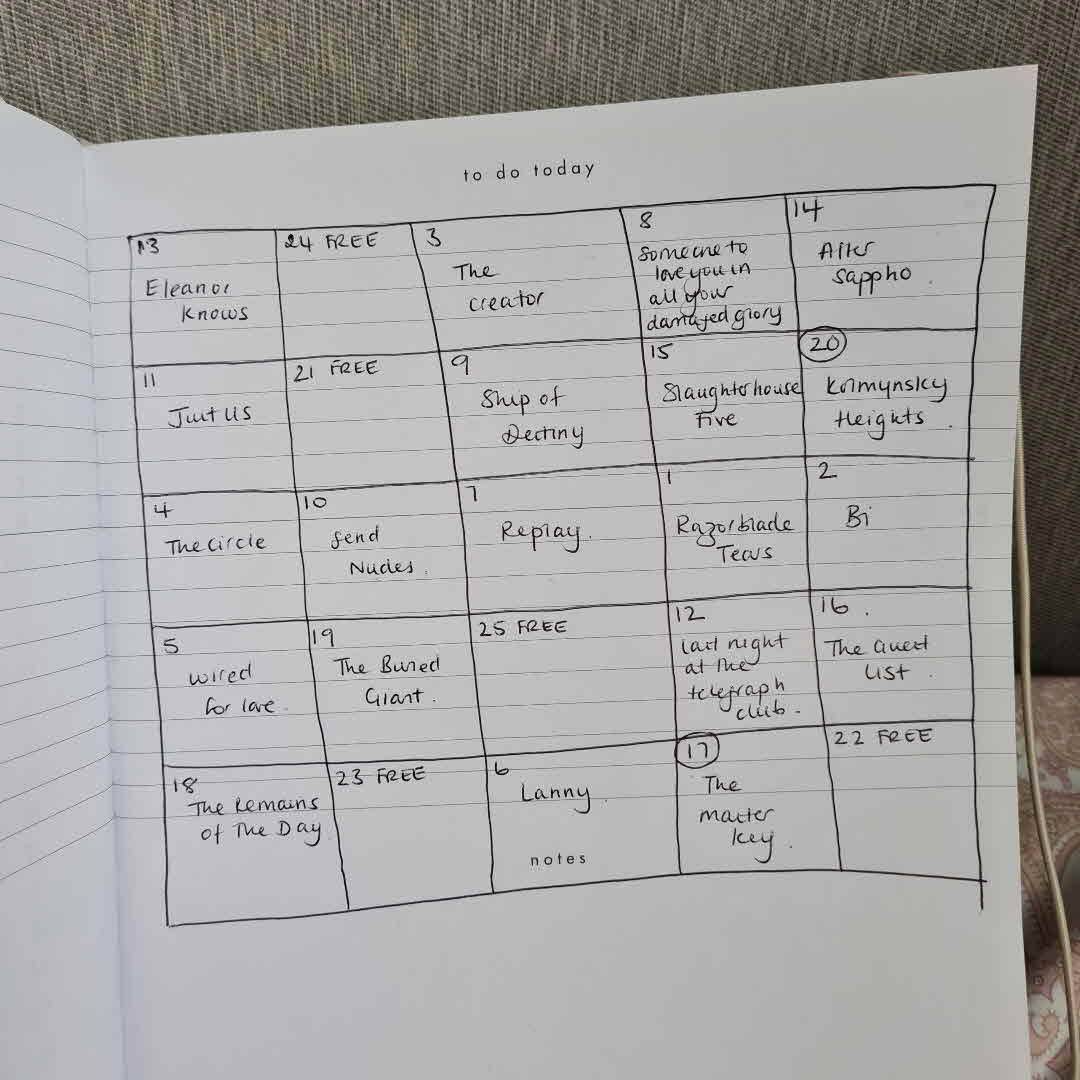 to do today
13
Eleanor
Knows
24 FREE
3
The
creator
8
Someone to
love you in
all your
damaged glory
14
After
Sappho.
11
Just us
21 FREE
9
Ship of
Destiny
15
Slaughterhouse
Five
20
Kolmynsky
Heights.
4
The Circle
10
Send
Nudes.
7
Replay.
1
Razorblade
Tears
2
Bi
5
wired
for love.
19
The Buried
Giant.
25 FREE
12
last night
at the
telegraph
club.
16.
The Guest
List.
18
The Remains
of The Day
23 FREE
6
Lanny.
notes
17
The
master
key.
22 FREE